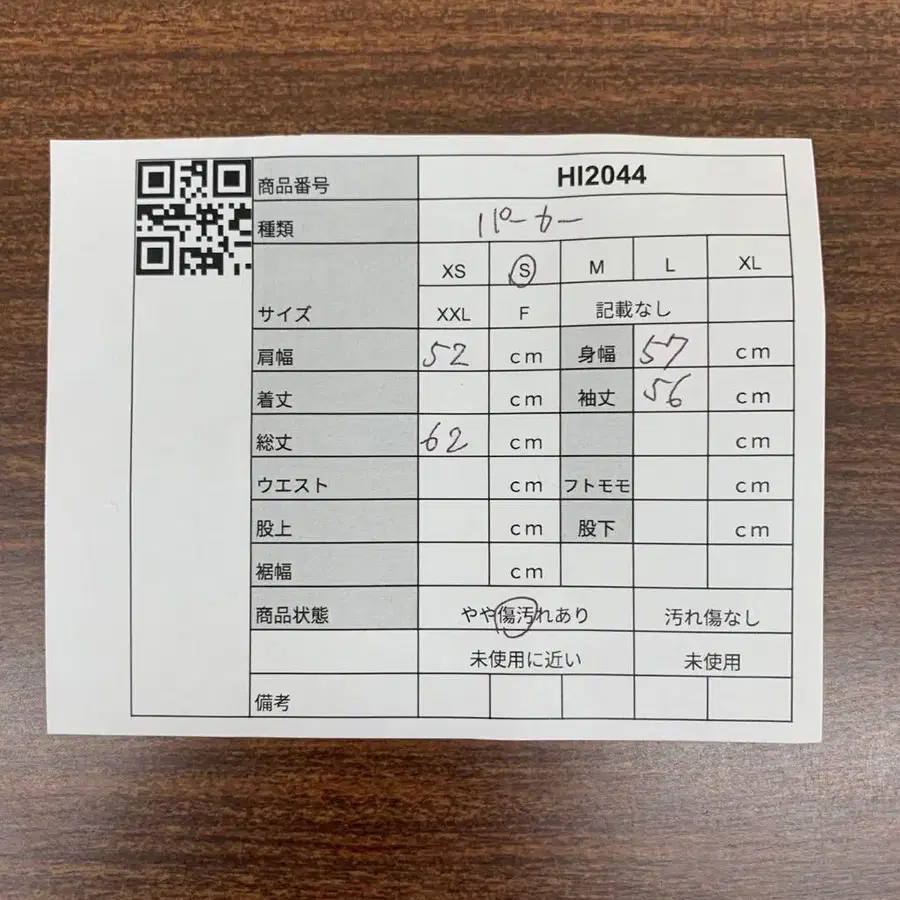 商品番号 HI2044
種類 パーカー
XS S M L XL
サイズ XXL F 記載なし
肩幅 52 cm 身幅 57 cm
着丈 cm 袖丈 56 cm
総丈 62 cm cm
ウエスト cm フトモモ cm
股上 cm 股下 cm
裾幅 cm
商品状態 やや傷汚れあり 汚れ傷なし
未使用に近い 未使用
備考